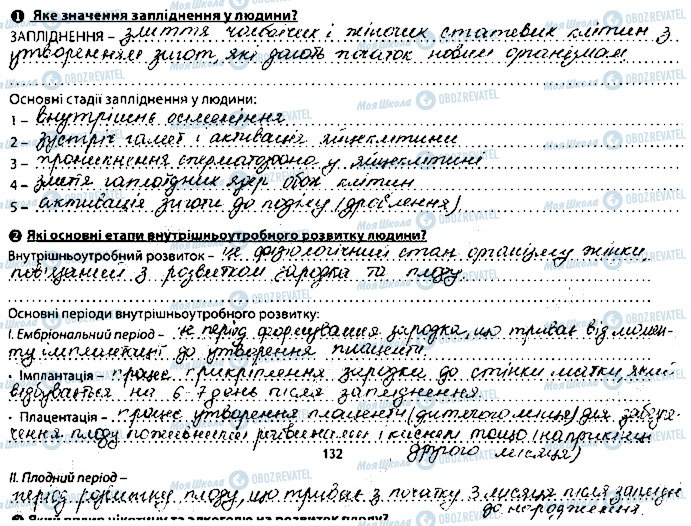 ❶ Яке значення запліднення у людини?
ЗАПЛІДНЕННЯ – злиття чоловічих і жіночих статевих клітин з
утворенням зигот, які дають початок новим організмам.
Основні стадії запліднення у людини:
1 – внутрішнє осіменіння
2 – зустріч гамет і активація яйцеклітини
3 – проникнення сперматозоона у яйцеклітині
4 – злиття гаплоїдних ядер обох клітин
5 – активація зиготи до поділу (дроблення)
❷ Які основні етапи внутрішньоутробного розвитку людини?
Внутрішньоутробний розвиток – це фізіологічний стан організму жінки,
пов'язаний з розвитком зародка та плоду.
Основні періоди внутрішньоутробного розвитку:
I. Ембріональний період – це період формування зародка, що триває від момен-
ту імплантації до утворення плаценти.
• Імплантація – процес прикріплення зародка до стінки матки, який
відбувається на 6-7 день після запліднення.
• Плацентація – процес утворення плаценти (дитячого місця) для забезпе-
чення плоду поживними речовинами і киснем тощо (наприкінці
другого місяця)
132
II. Плодний період –
період розвитку плоду, що триває з початку 3 місяця після заплідн
до народження.